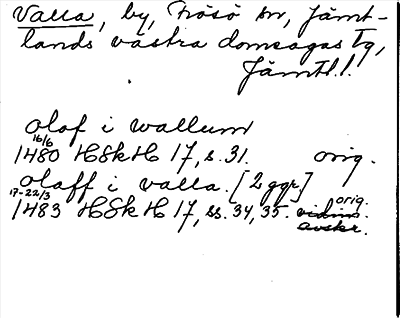 Valla, by, Frösö sn, Jämt-
lands västra domsagas tg,
Jämtl. l.
olof i wallum
16/6
1480 HSkH 17, s. 31. orig.
olaff i valla. [2 ggr.]
17-22/3 orig.
1483 HSkH 17, ss. 34, 35. vidim.
avskr.